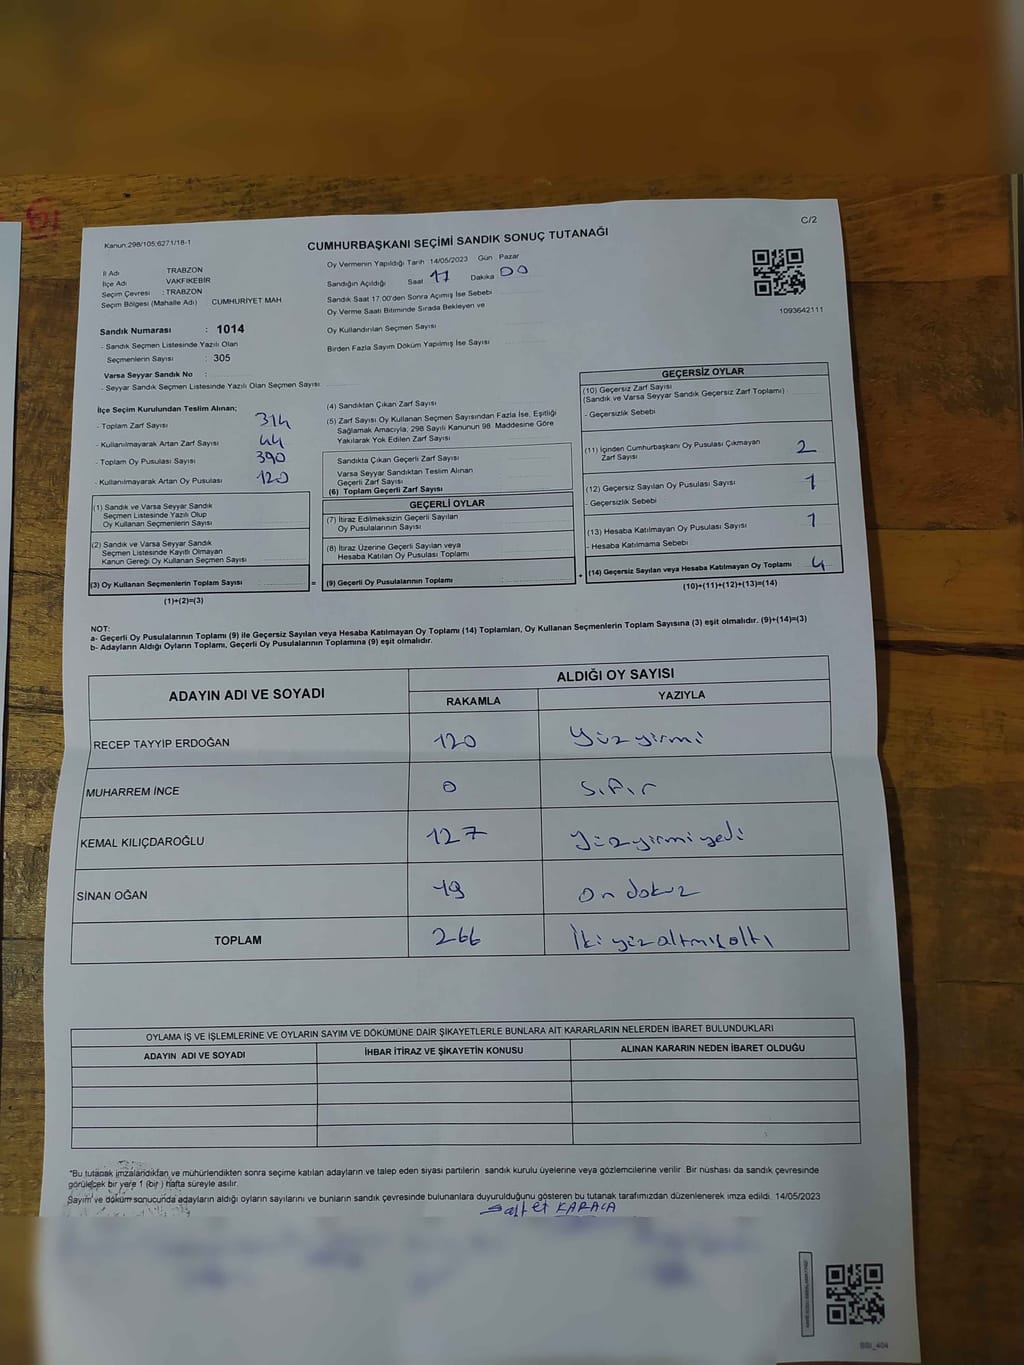 C/2
Kanun:298/105;6271/18-1
CUMHURBAŞKANI SEÇİMİ SANDIK SONUÇ TUTANAĞI
İl Adı TRABZON
İlçe Adı VAKFIKEBİR
Seçim Çevresi : TRABZON
Seçim Bölgesi (Mahalle Adı) CUMHURİYET MAH
Sandık Numarası : 1014
- Sandık Seçmen Listesinde Yazılı Olan
Seçmenlerin Sayısı : 305
Varsa Seyyar Sandık No :
- Seyyar Sandık Seçmen Listesinde Yazılı Olan Seçmen Sayısı:
Oy Vermenin Yapıldığı Tarih 14/05/2023 Gün Pazar
Sandığın Açıldığı Saat 17 Dakika 00
Sandık Saat 17.00'den Sonra Açımış İse Sebebi
Oy Verme Saati Bitiminde Sırada Bekleyen ve
Oy Kullandırılan Seçmen Sayısı
Birden Fazla Sayım Döküm Yapılmış İse Sayısı
1093642111
İlçe Seçim Kurulundan Teslim Alınan;
- Toplam Zarf Sayısı 314
- Kullanılmayarak Artan Zarf Sayısı 44
- Toplam Oy Pusulası Sayısı 390
- Kullanılmayarak Artan Oy Pusulası 120
(1) Sandık ve Varsa Seyyar Sandık
Seçmen Listesinde Yazılı Olup
Oy Kullanan Seçmenlerin Sayısı
(2) Sandık ve Varsa Seyyar Sandık
Seçmen Listesinde Kayıtlı Olmayan
Kanun Gereği Oy Kullanan Seçmen Sayısı
(3) Oy Kullanan Seçmenlerin Toplam Sayısı =
(1)+(2)=(3)
(4) Sandıktan Çıkan Zarf Sayısı
(5) Zarf Sayısı Oy Kullanan Seçmen Sayısından Fazla İse, Eşitliği
Sağlamak Amacıyla, 298 Sayılı Kanunun 98. Maddesine Göre
Yakılarak Yok Edilen Zarf Sayısı
Sandıkta Çıkan Geçerli Zarf Sayısı
Varsa Seyyar Sandıktan Teslim Alınan
Geçerli Zarf Sayısı
(6) Toplam Geçerli Zarf Sayısı
GEÇERLİ OYLAR
(7) İtiraz Edilmeksizin Geçerli Sayılan
Oy Pusulalarının Sayısı
(8) İtiraz Üzerine Geçerli Sayılan veya
Hesaba Katılan Oy Pusulası Toplamı
(9) Geçerli Oy Pusulalarının Toplamı +
GEÇERSİZ OYLAR
(10) Geçersiz Zarf Sayısı
(Sandık ve Varsa Seyyar Sandık Geçersiz Zarf Toplamı)
- Geçersizlik Sebebi
(11) İçinden Cumhurbaşkanı Oy Pusulası Çıkmayan
Zarf Sayısı 2
(12) Geçersiz Sayılan Oy Pusulası Sayısı 1
- Geçersizlik Sebebi
(13) Hesaba Katılmayan Oy Pusulası Sayısı 1
- Hesaba Katılmama Sebebi
(14) Geçersiz Sayılan veya Hesaba Katılmayan Oy Toplamı 4
(10)+(11)+(12)+(13)=(14)
NOT:
a- Geçerli Oy Pusulalarının Toplamı (9) ile Geçersiz Sayılan veya Hesaba Katılmayan Oy Toplamı (14) Toplamları, Oy Kullanan Seçmenlerin Toplam Sayısına (3) eşit olmalıdır. (9)+(14)=(3)
b- Adayların Aldığı Oyların Toplamı, Geçerli Oy Pusulalarının Toplamına (9) eşit olmalıdır.
ADAYIN ADI VE SOYADI ALDIĞI OY SAYISI
RAKAMLA YAZIYLA
RECEP TAYYİP ERDOĞAN 120 Yüz yirmi
MUHARREM İNCE 0 Sıfır
KEMAL KILIÇDAROĞLU 127 Yüz yirmi yedi
SİNAN OĞAN 19 On dokuz
TOPLAM 266 İki yüz altmış altı
OYLAMA İŞ VE İŞLEMLERİNE VE OYLARIN SAYIM VE DÖKÜMÜNE DAİR ŞİKAYETLERLE BUNLARA AİT KARARLARIN NELERDEN İBARET BULUNDUKLARI
ADAYIN ADI VE SOYADI İHBAR İTİRAZ VE ŞİKAYETİN KONUSU ALINAN KARARIN NEDEN İBARET OLDUĞU
*Bu tutanak imzalandıktan ve mühürlendikten sonra seçime katılan adayların ve talep eden siyasi partilerin sandık kurulu üyelerine veya gözlemcilerine verilir. Bir nüshası da sandık çevresinde
görülecek bir yere 1 (bir) hafta süreyle asılır.
Sayım ve döküm sonucunda adayların aldığı oyların sayılarını ve bunların sandık çevresinde bulunanlara duyurulduğunu gösteren bu tutanak tarafımızdan düzenlenerek imza edildi. 14/05/2023
KARACA